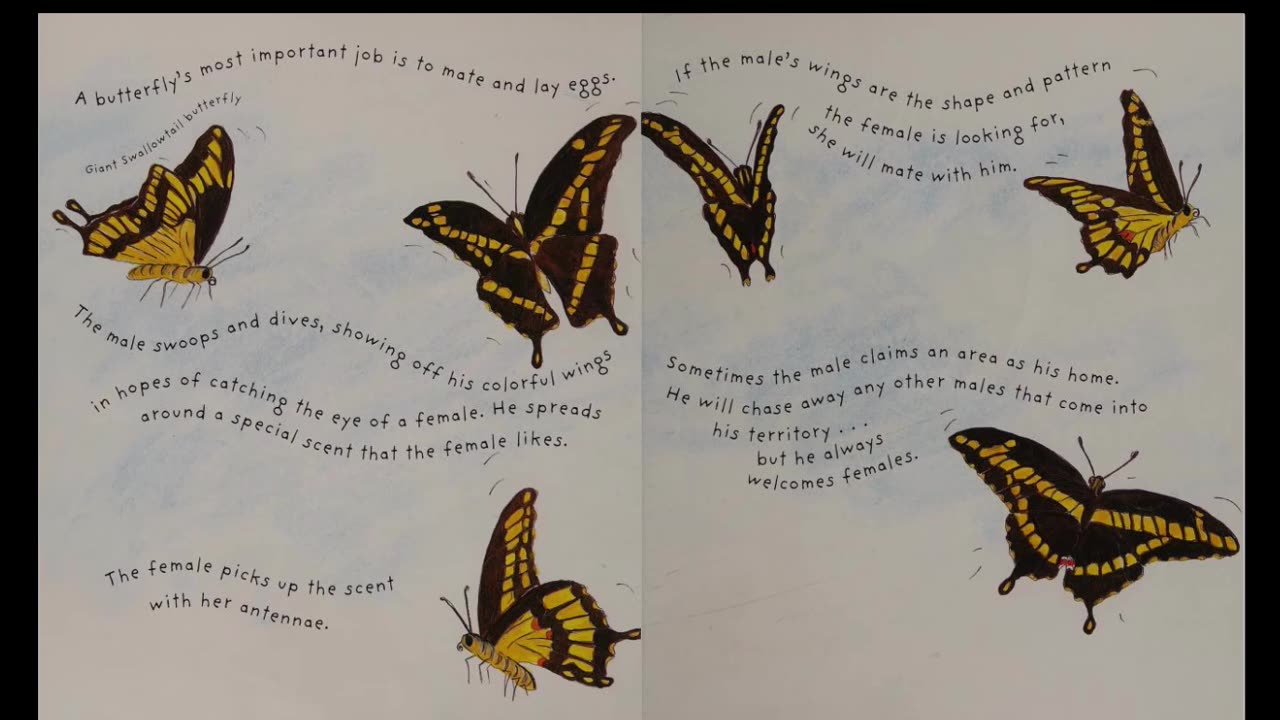 A butterfly's most important job is to mate and lay eggs.
Giant Swallowtail butterfly
The male swoops and dives, showing off his colorful wings
in hopes of catching the eye of a female. He spreads
around a special scent that the female likes.
The female picks up the scent
with her antennae.
If the male's wings are the shape and pattern
the female is looking for,
she will mate with him.
Sometimes the male claims an area as his home.
He will chase away any other males that come into
his territory . . .
but he always
welcomes females.